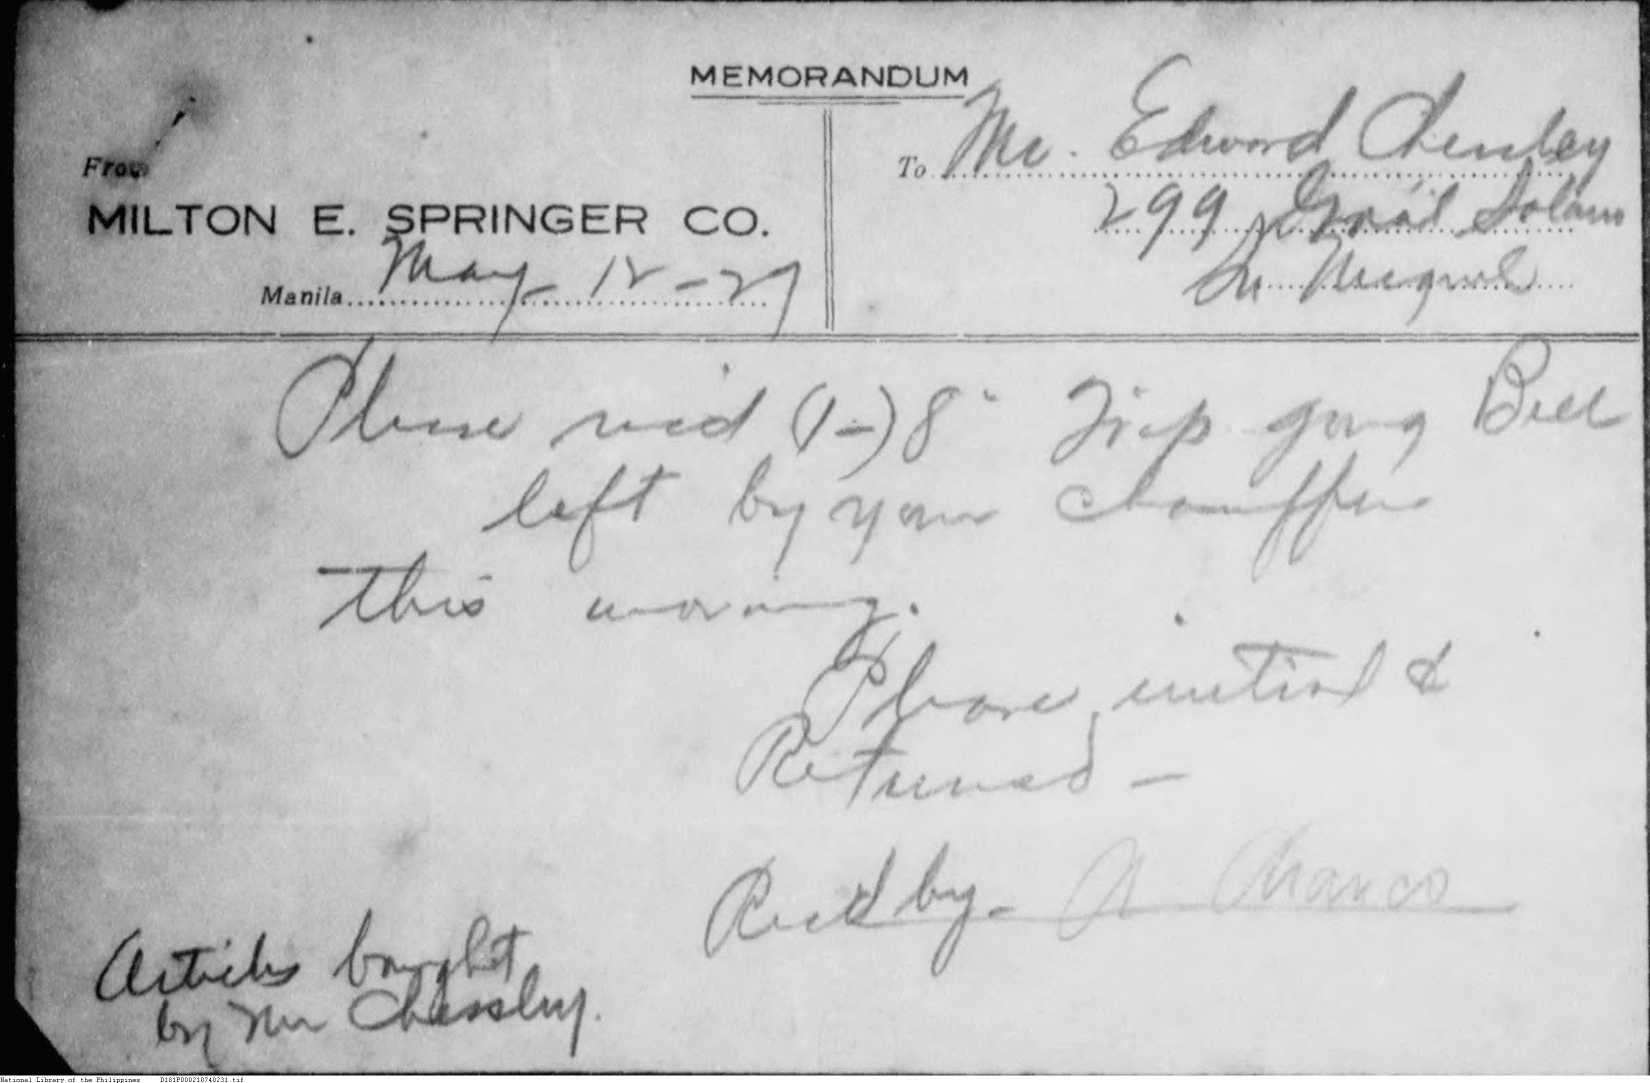 MEMORANDUM
From
MILTON E. SPRINGER CO.
Manila May 12-27
To Mr. Edward Chessley
299 Gral Solano
Sn Miguel
Please rec'd (1-) 8" Trip gong Bell
left by your chauffeur
this morning.
Please initial &
Returned -
Rec'd by - Chanco
Articles bought
by Mr Chessley.
National Library of the Philippines D181P000210740231.tif